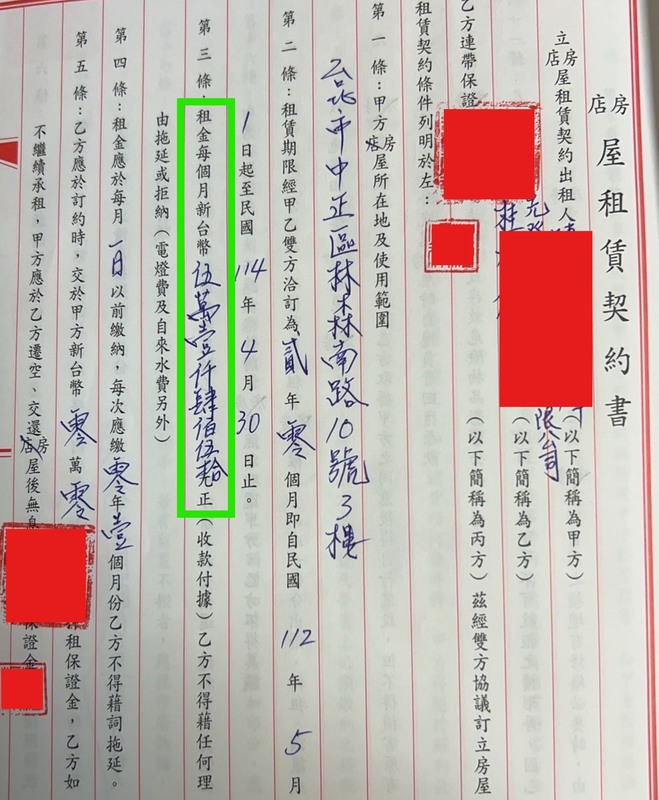 房店屋租賃契約書
立房店屋租賃契約出租人
限公司(以下簡稱為甲方)
(以下簡稱為乙方)
乙方連帶保證(以下簡稱為丙方)茲經雙方協議訂立房屋
租賃契約條件列明於左:
第一條:甲方房店屋所在地及使用範圍
台北市中正區林森南路10號3樓
第二條:租賃期限經甲乙雙方洽訂為貳年零個月即自民國112年5月
1日起至民國114年4月30日止。
第三條:租金每個月新台幣伍萬壹仟肆佰伍拾元正(收款付據)乙方不得藉任何理
由拖延或拒納(電燈費及自來水費另外)
第四條:租金應於每月一日以前繳納,每次應繳零年壹個月份乙方不得藉詞拖延。
第五條:乙方應於訂約時,交於甲方新台幣零萬零租保證金,乙方如
不繼續承租,甲方應於乙方遷空、交還房店屋後無息保證金